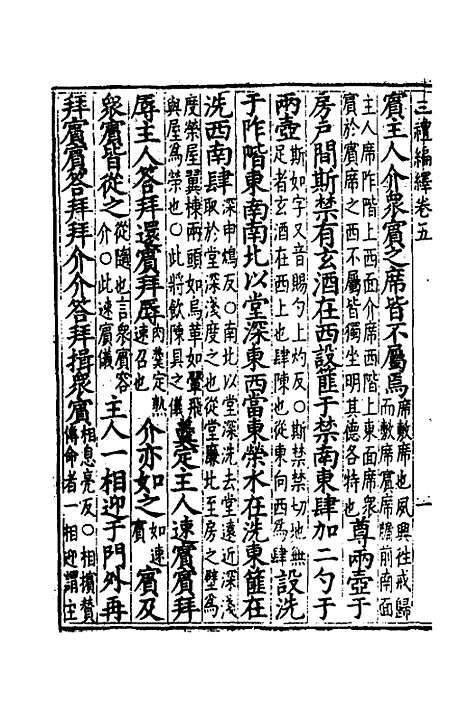 三禮編繹卷五 一
賓主人介衆賓之席皆不屬焉席敷席也夙興往戒歸而敷席賓席牖前南面
主人席阼階上西面介席西階上東面席衆賓於賓席之西不屬皆獨坐明其德各特也尊兩壺于
房戶間斯禁有玄酒在西設篚于禁南東肆加二勺于
兩壺斯如字又音賜勺上灼反○斯禁禁切地無足者玄酒在西上也肆陳也從東向西為肆設洗
于阼階東南南北以堂深東西當東榮水在洗東篚在
洗西南肆深申鴆反○南北以堂深洗去堂遠近深淺取於堂深淺度之也從堂廉北至房之壁為
度榮屋翼棟兩頭如鳥革如翬飛與屋為榮也○此將飲陳具之儀羹定主人速賓賓拜
辱主人答拜還賓拜辱肉羹定熟速召也介亦如之如速賓賓及
衆賓皆從之從隨也言衆賓容介○此速賓儀主人一相迎于門外再
拜賓賓答拜拜介介答拜揖衆賓相息亮反○相擯贊傳命者一相迎謂主